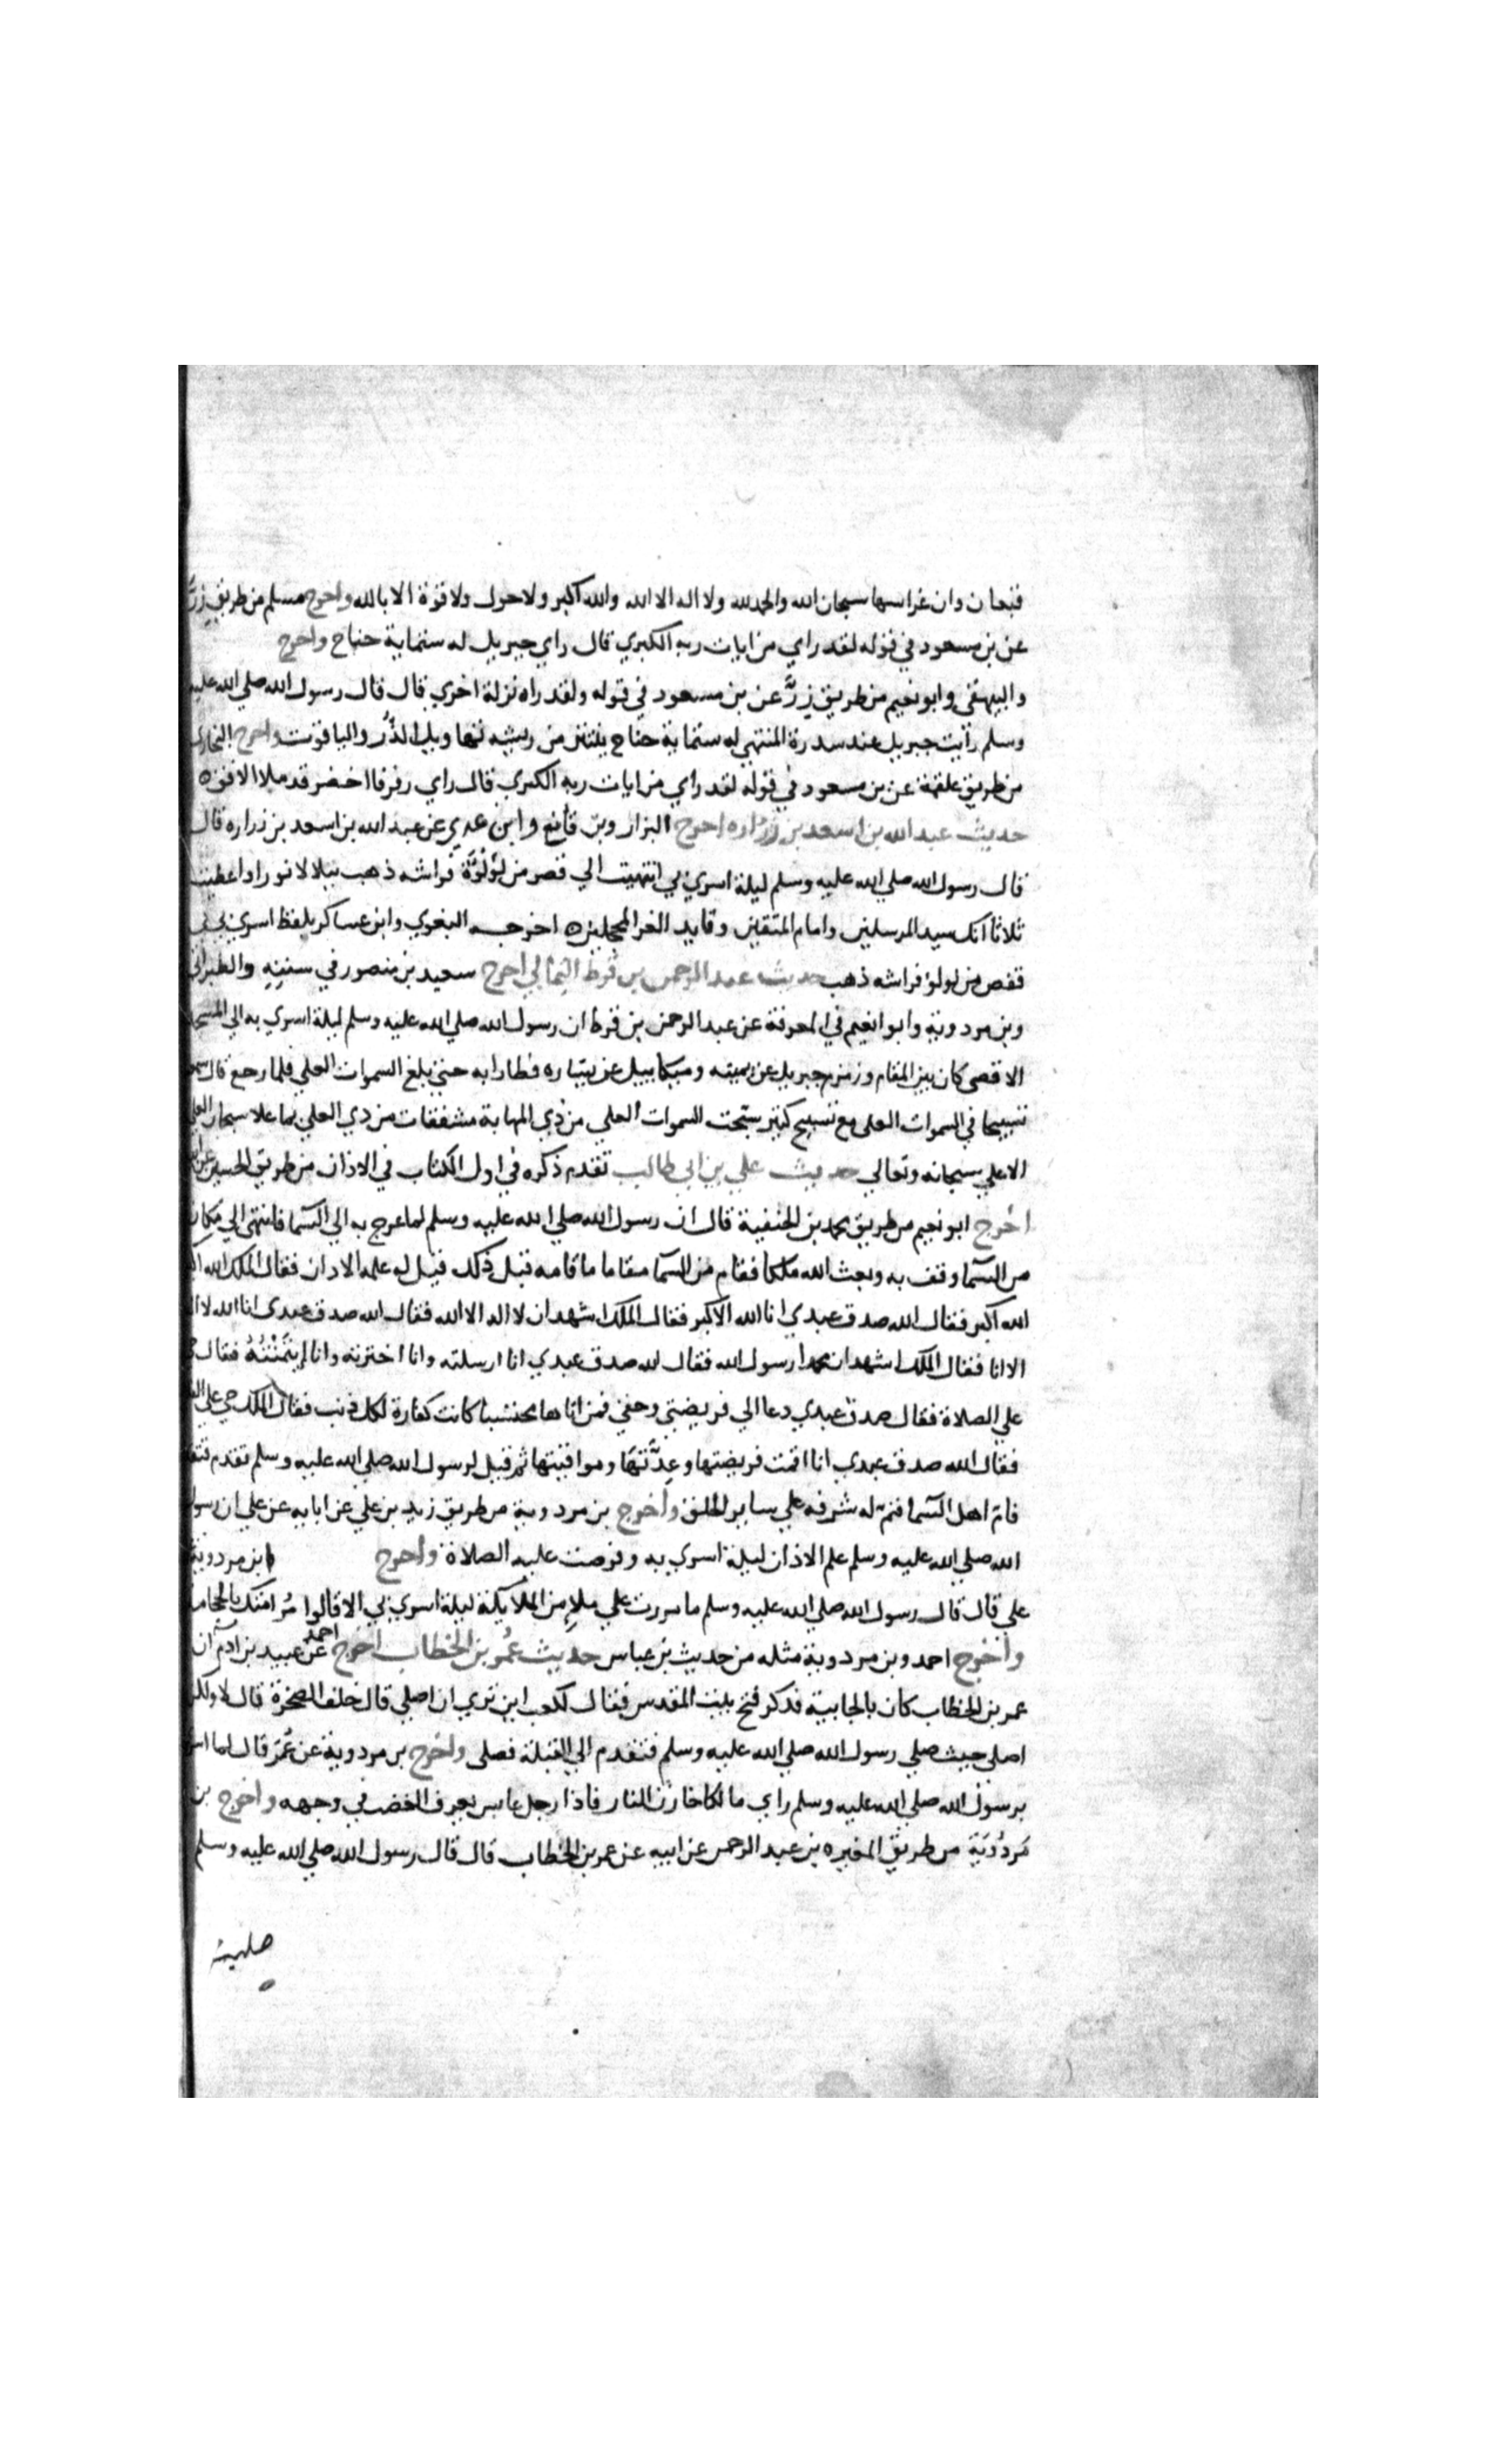 قيعان وان غراسها سبحان الله والحمد لله ولا اله الا الله والله اكبر ولا حول ولا قوة الا بالله واخرج مسلم من طريق زرّ
عن بن مسعود في قوله لقد راي من ايات ربه الكبري قال راي جبريل له ستماية جناح واخرج
والبيهقي وابو نعيم من طريق زرّ عن بن مسعود في قوله ولقد راه نزلة اخري قال قال رسول الله صلي الله عليه
وسلم رأيت جبريل عند سدرة المنتهي له ستماية جناح ينتثر من ريشه تهاويل الدُّر والياقوت واخرج البخاري
من طريق علقمة عن بن مسعود في قوله لقد راي من ايات ربه الكبري قال راي رفرفا اخضر قد ملا الافق ه
حديث عبد الله بن اسعد بن زراره اخرج البزار وبن قانع وابن عدي عن عبد الله بن اسعد بن زراره قال
قال رسول الله صلي الله عليه وسلم ليلة اسري بي انتهيت الي قصر من لؤلؤة فراشه ذهب يتلالا نورا واعطيت
ثلاثا انك سيد المرسلين وامام المتقين وقايد الغر المحجلين ه اخرجه البغوي وابن عساكر بلفظ اسري بي في
قفص من لولو فراشه ذهب حديث عبد الرحمن بن قرط الثمالي اخرج سعيد بن منصور في سننه والطبراني
وبن مردوية وابو انعيم في المعرفة عن عبد الرحمن بن قرط ان رسول الله صلي الله عليه وسلم ليلة اسري به الي المسجد
الاقصي كان بين المقام وزمزم جبريل عن يمينه وميكاييل عن يتياره فطارا به حتي بلغ السموات العلي فلما رجع قال سمعت
تسبيحا في السموات العلي مع تسبيح كثير سبّحت السموات العلي من ذي المهابة مشفقات من ذي العلي بما علا سبحان العلي
الاعلي سبحانه وتعالي حديث علي بن ابي طالب تقدم ذكره في اول الكتاب في الاذان من طريق الحسين عن
اخرج ابو نعيم من طريق محمد بن الحنفية قال ان رسول الله صلي الله عليه وسلم لما عرج به الي السما فانتهي الي مكان
من السما وقف به وبعث الله ملكا فقام من السما مقاما ما قامه قبل ذلك قيل له علمه الاذان فقال الملك الله
الله اكبر فقال الله صدق عبدي انا الله الاكبر فقال الملك اشهد ان لا اله الا الله فقال الله صدق عبدي انا الله لا
الا انا فقال الملك اشهد ان محمدا رسول الله فقال الله صدق عبدي انا ارسلته وانا اخترته وانا ايتمنته فقال
علي الصلاة فقال صدق عبدي دعا الي فريضتي وحقي فمن اتاها محتسبا كانت كفارة لكل ذنب فقال الملك حي علي
فقال الله صدق عبدي انا اقمت فريضتها وعدّتها ومواقيتها ثم قيل لرسول الله صلي الله عليه وسلم تقدم
فام اهل السما فتم له شرفه علي ساير الخلق واخرج بن مردوية من طريق زيد بن علي عن ابايه عن علي ان رسول
الله صلي الله عليه وسلم علم الاذان ليلة اسري به وفرضت عليه الصلاة واخرج ابن مردوية
علي قال قال رسول الله صلي الله عليه وسلم ما مررت علي ملإ من الملايكة ليلة اسري بي الا قالوا مُر امتك بالحجامة
واخرج احمد وبن مردوية مثله من حديث بن عباس حديث عمر بن الخطاب اخرج احمد عن عبيد بن ادم ان
عمر بن الخطاب كان بالجابية فذكر فتح بيت المقدس فقال لكعب اين تري ان اصلي قال خلف الصخرة قال لا ولكن
اصلي حيث صلي رسول الله صلي الله عليه وسلم فتقدم الي القبلة فصلي واخرج بن مردوية عن عمر قال لما
برسول الله صلي الله عليه وسلم راي مالكا خازن النار فاذا رجل عابس يعرف الغضب في وجهه واخرج بن
مردُويَة من طريق المغيره بن عبد الرحمن عن ابيه عن عمر بن الخطاب قال قال رسول الله صلي الله عليه وسلم
صليت